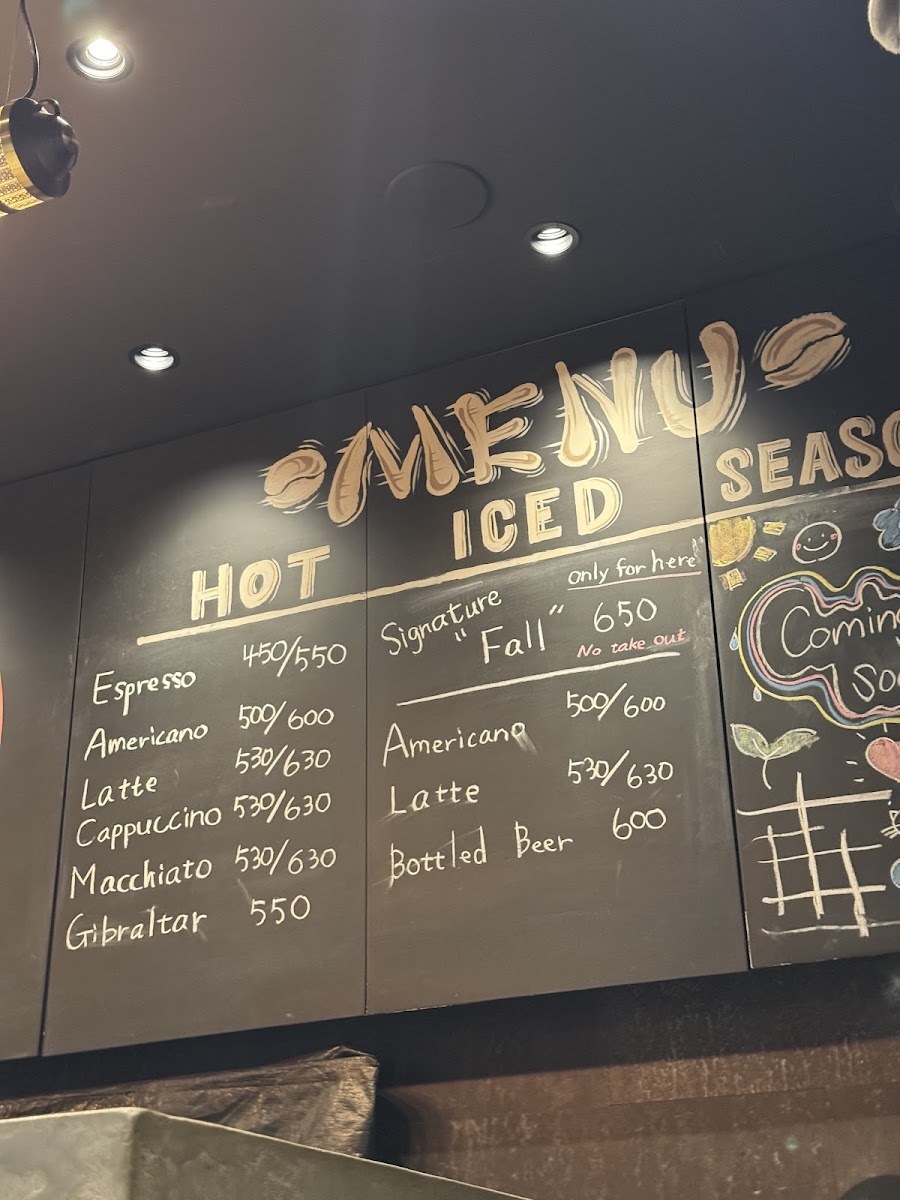 MENU
HOT
Espresso 450/550
Americano 500/600
Latte 530/630
Cappuccino 530/630
Macchiato 530/630
Gibraltar 550
ICED
only for here
Signature
"Fall" 650
No take out
Americano 500/600
Latte 530/630
Bottled Beer 600
Coming